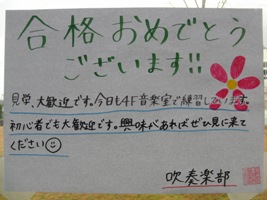 合格おめでとう
ございます!!
見学、大歓迎です。今日も4F音楽室で練習しています。
初心者でも大歓迎です。興味があればぜひ見に来て
ください☺
吹奏楽部